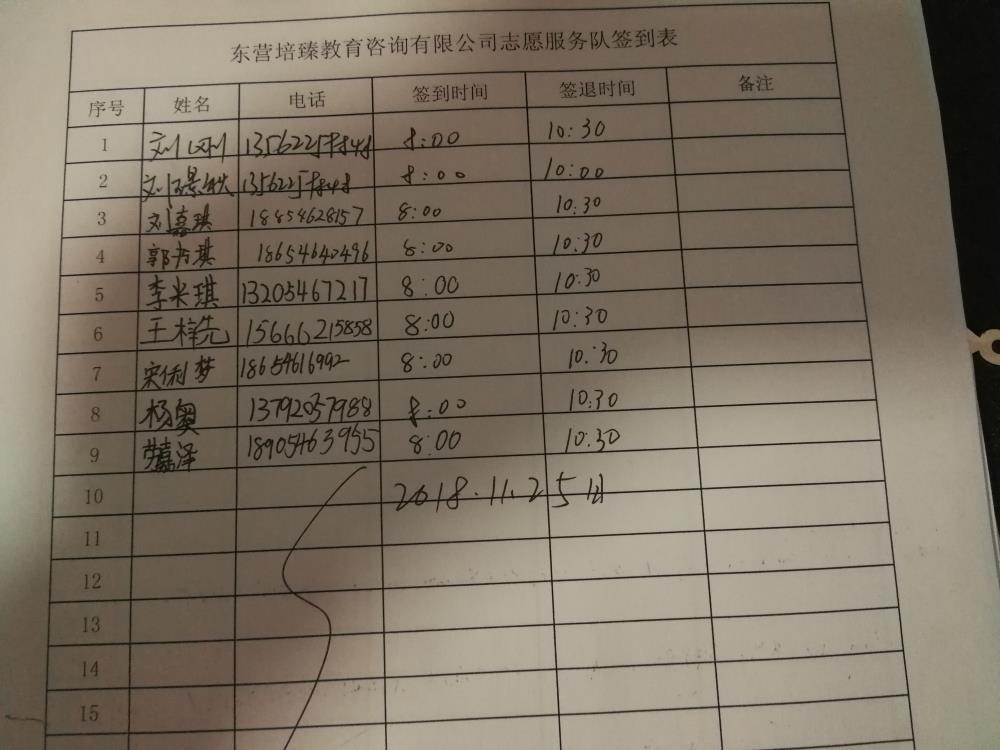 东营培臻教育咨询有限公司志愿服务队签到表
序号 姓名 电话 签到时间 签退时间 备注
1 8:00 10:30
2 8:00 10:00
3 刘嘉琪 18854628157 8:00 10:30
4 18654640496 8:00 10:30
5 李米琪 13205467217 8:00 10:30
6 王梓先 15666215858 8:00 10:30
7 宋俐梦 18654616992 8:00 10:30
8 杨奥 13792057988 8:00 10:30
9 嘉泽 18905463955 8:00 10:30
10 2018.11.25日
11
12
13
14
15